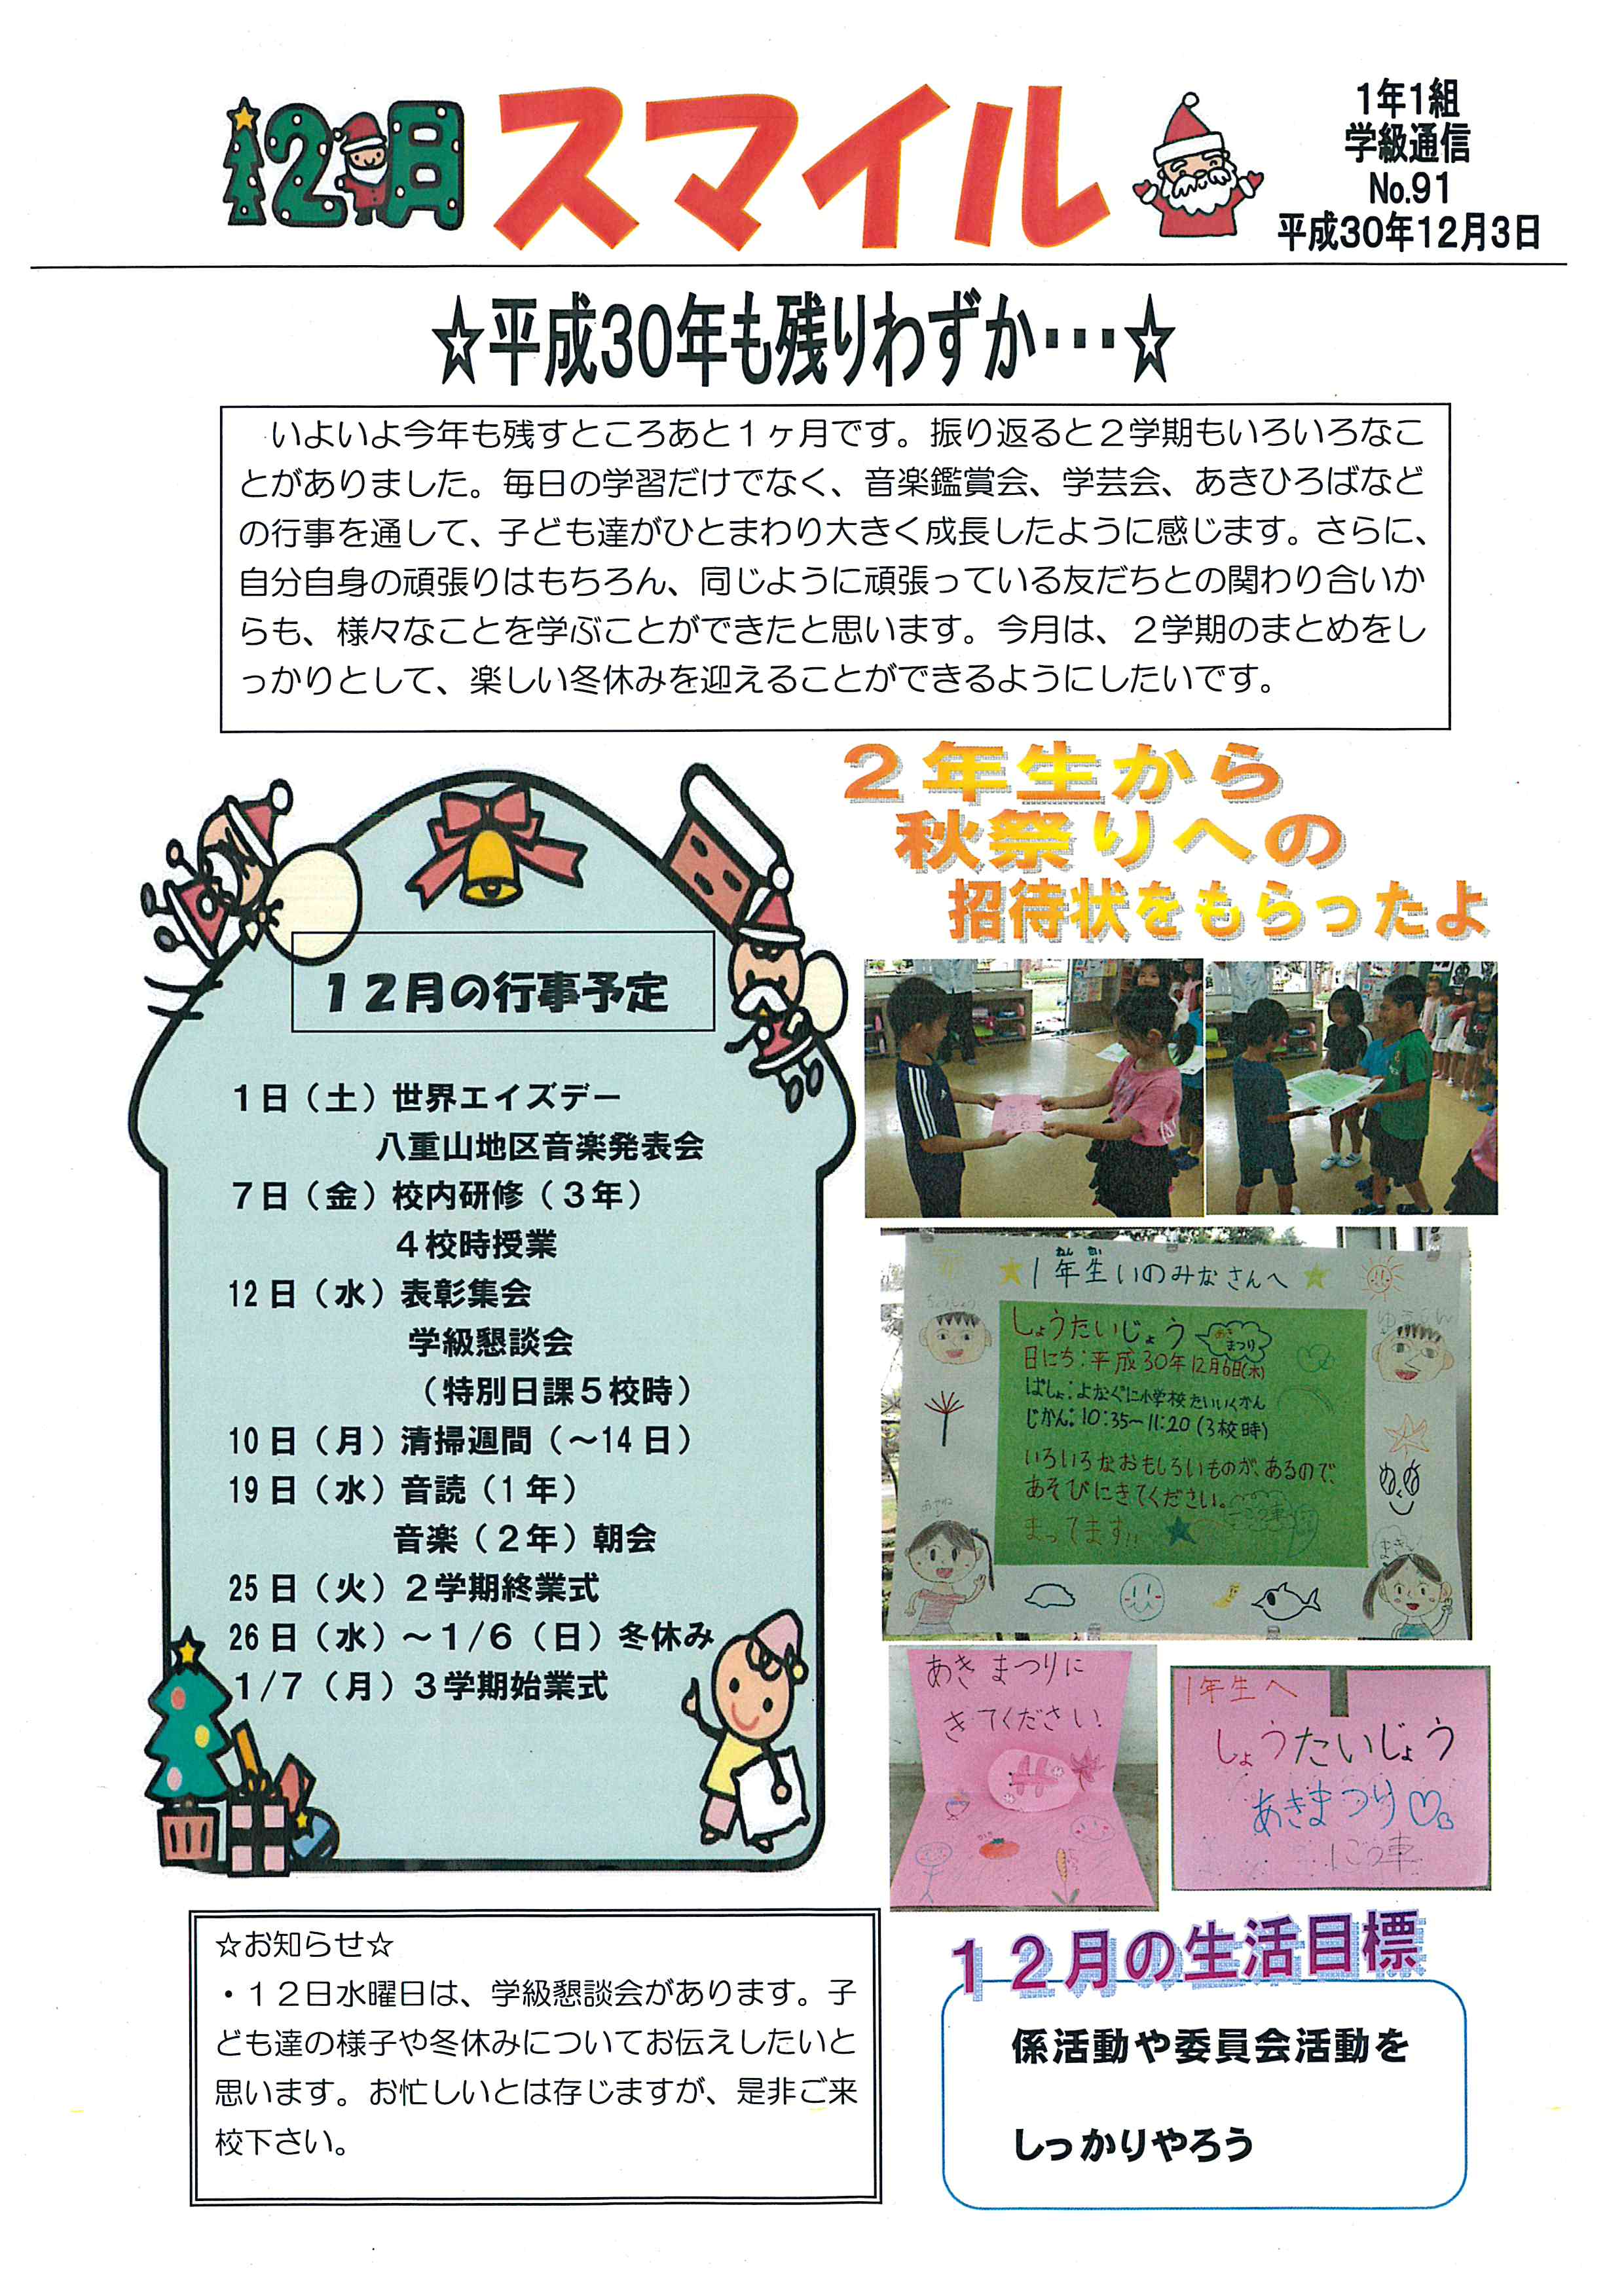 12月
スマイル
1年1組
学級通信
No.91
平成30年12月3日
☆平成30年も残りわずか・・・☆
いよいよ今年も残すところあと１ヶ月です。振り返ると２学期もいろいろなこ
とがありました。毎日の学習だけでなく、音楽鑑賞会、学芸会、あきひろばなど
の行事を通して、子ども達がひとまわり大きく成長したように感じます。さらに、
自分自身の頑張りはもちろん、同じように頑張っている友だちとの関わり合いか
らも、様々なことを学ぶことができたと思います。今月は、２学期のまとめをし
っかりとして、楽しい冬休みを迎えることができるようにしたいです。
１２月の行事予定
１日（土）世界エイズデー
八重山地区音楽発表会
７日（金）校内研修（３年）
４校時授業
12日（水）表彰集会
学級懇談会
（特別日課５校時）
10日（月）清掃週間（～14日）
19日（水）音読（1年）
音楽（２年）朝会
25日（火）２学期終業式
26日（水）～１/６（日）冬休み
１/７（月）３学期始業式
２年生から
秋祭りへの
招待状をもらったよ
ねん せい
★1年生いのみなさんへ★
しょうたいじょう
あき
まつり
日にち：平成30年12月6日(木)
ばしょ：よなぐに小学校たいいくかん
じかん：10:35～11:20(3校時)
いろいろなおもしろいものが、あるので、
あそびにきてください。
まってます!!
あきまつりに
きてください！
1年生へ
しょうたいじょう
あきまつり
☆お知らせ☆
・１２日水曜日は、学級懇談会があります。子
ども達の様子や冬休みについてお伝えしたいと
思います。お忙しいとは存じますが、是非ご来
校下さい。
１２月の生活目標
係活動や委員会活動を
しっかりやろう